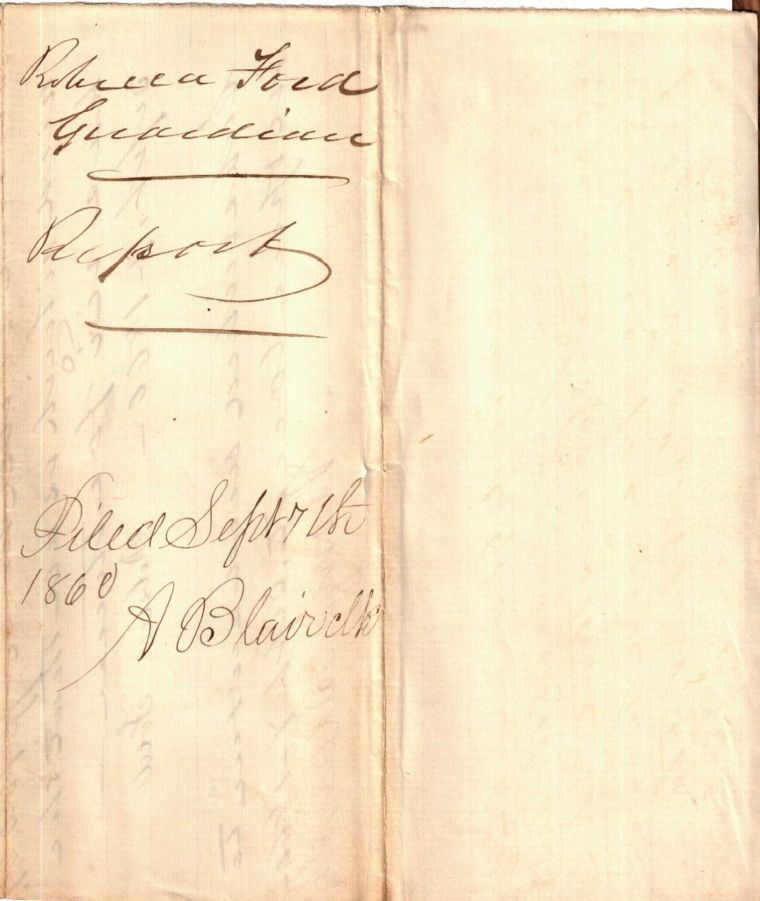 Rebecca Ford
Guardian
Report
Filed Sept 7th
1860
A Blair clk